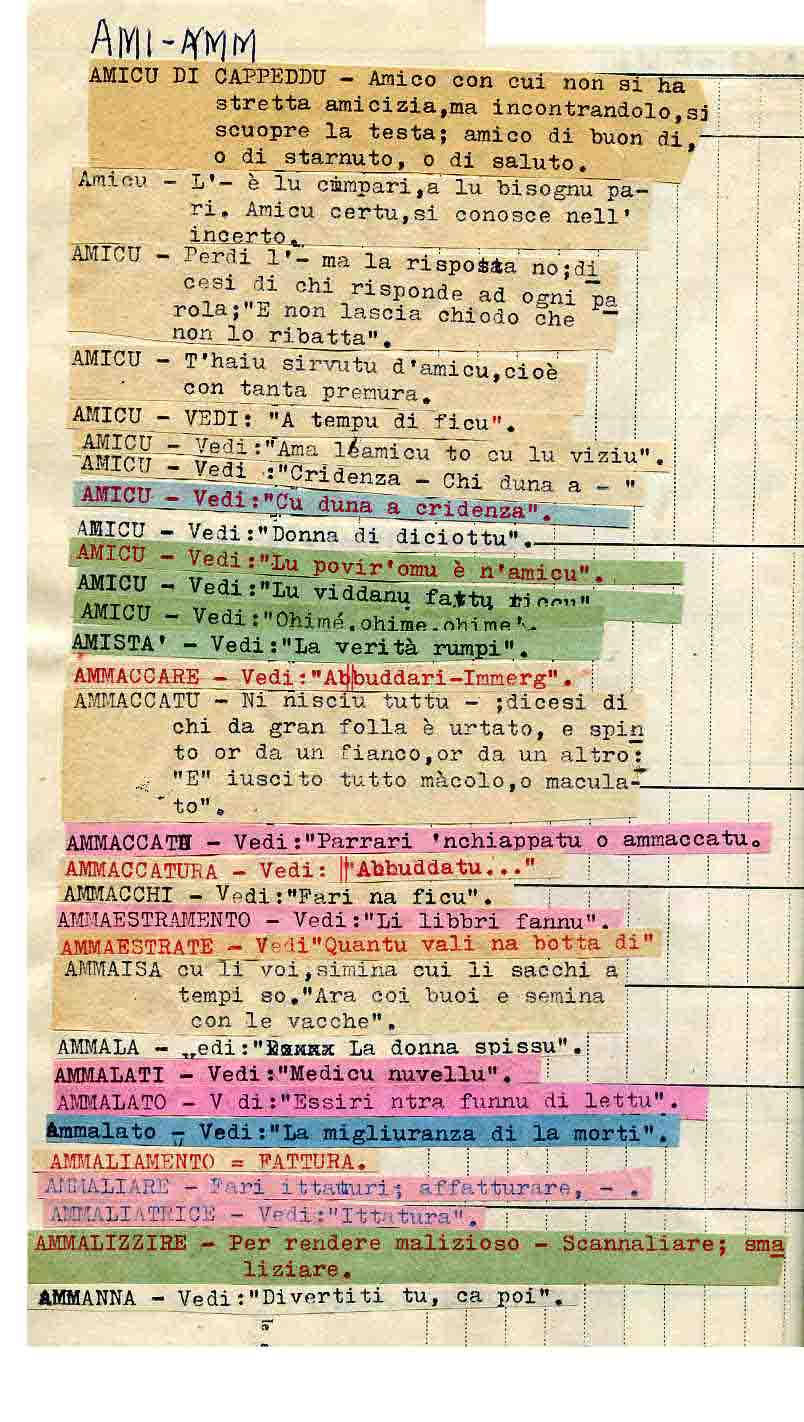 AMI-AMM
AMICU DI CAPPEDDU - Amico con cui non si ha
stretta amicizia,ma incontrandolo,si
scuopre la testa; amico di buon di,
o di starnuto, o di saluto.
Amicu - L'- è lu cumpari,a lu bisognu pa-
ri. Amicu certu,si conosce nell'
incerto.
AMICU - Perdi l'- ma la risposta no;di
cesi di chi risponde ad ogni pa
rola;"E non lascia chiodo che
non lo ribatta".
AMICU - T'haiu sirvutu d'amicu,cioè
con tanta premura.
AMICU - VEDI: "A tempu di ficu".
AMICU - Vedi:"Ama l'amicu to cu lu viziu".
AMICU - Vedi :"Cridenza - Chi duna a - "
AMICU - Vedi:"Cu duna a cridenza".
AMICU - Vedi:"Donna di diciottu".
AMICU - Vedi:"Lu povir'omu è n'amicu".
AMICU - Vedi:"Lu viddanu fattu riccu"
AMICU - Vedi:"Ohimé.ohime.ohime".
AMISTA' - Vedi:"La verità rumpi".
AMMACCARE - Vedi:"Abbuddari-Immerg".
AMMACCATU - Ni nisciu tuttu - ;dicesi di
chi da gran folla è urtato, e spin
to or da un fianco,or da un altro:
"E" iuscito tutto màcolo,o macula-
to".
AMMACCATU - Vedi:"Parrari 'nchiappatu o ammaccatu.
AMMACCATURA - Vedi: "Abbuddatu..."
AMMACCHI - Vedi:"Fari na ficu".
AMMAESTRAMENTO - Vedi:"Li libbri fannu".
AMMAESTRATE - Vedi"Quantu vali na botta di"
AMMAISA cu li voi,simina cui li sacchi a
tempi so."Ara coi buoi e semina
con le vacche".
AMMALA - Vedi:" La donna spissu".
AMMALATI - Vedi:"Medicu nuvellu".
AMMALATO - V di:"Essiri ntra funnu di lettu".
Ammalato - Vedi:"La migliuranza di la morti".
AMMALIAMENTO = FATTURA.
AMMALIARE - Fari ittaturi; affatturare, - .
AMMALIATRICE - Vedi:"Ittatura".
AMMALIZZIRE - Per rendere malizioso - Scannaliare; sma
liziare.
AMMANNA - Vedi:"Divertiti tu, ca poi".